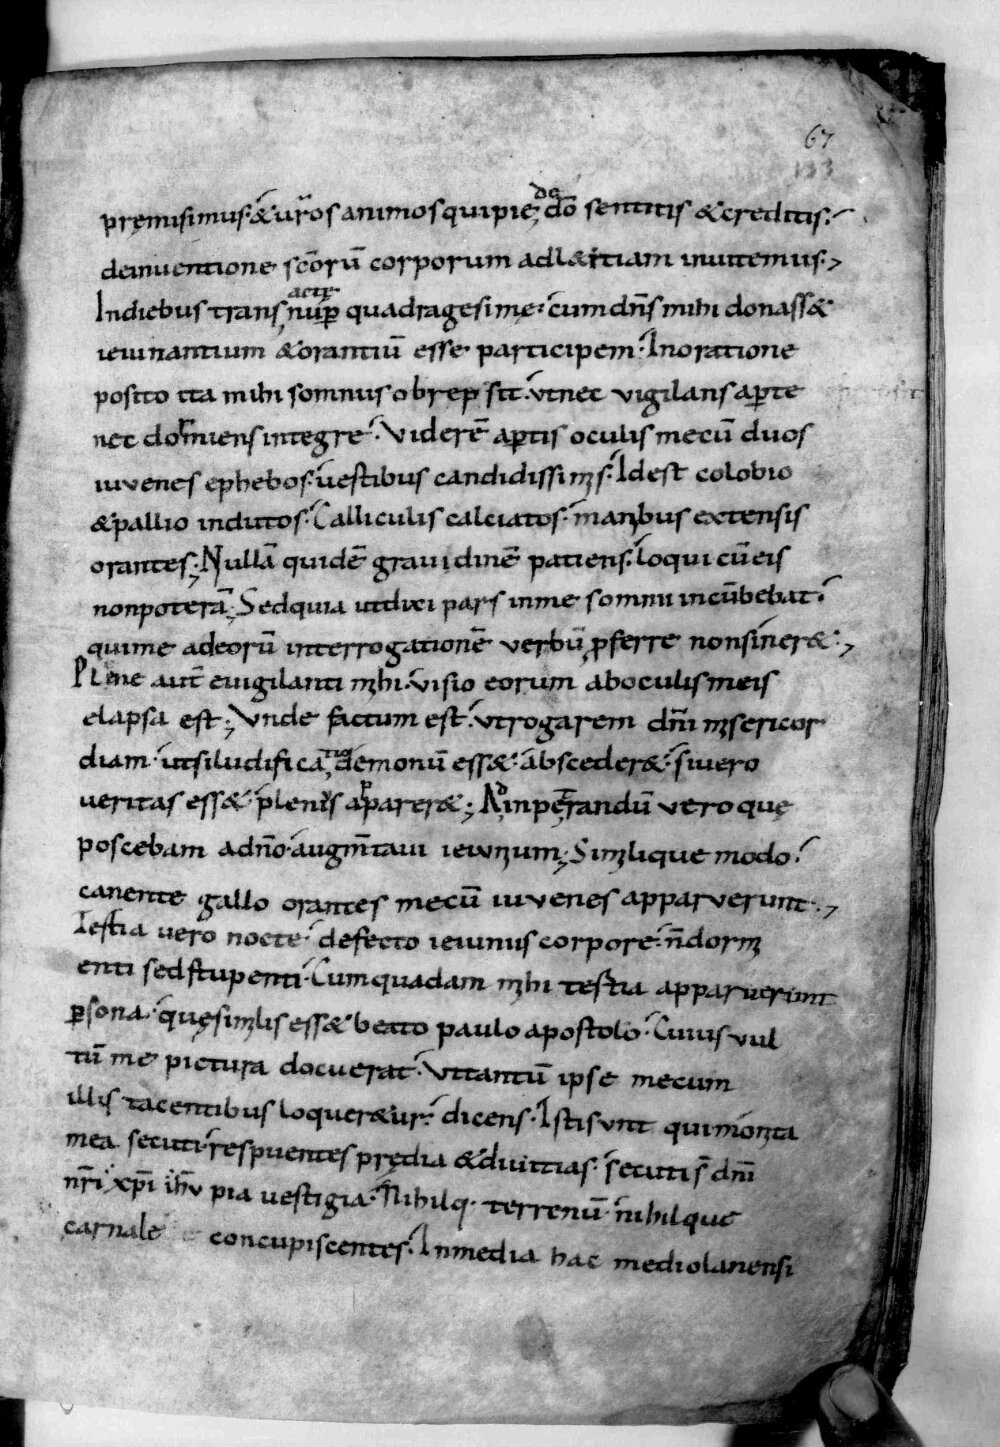 67
133
pręmisimus· & ur̄os animos qui pię de dō sentitis & creditis·
deinuentione sc̄orū corporum adl&itiam inuitemus·,
Indiebus transactę nup̄ quadragesimę· cum dn̄s mihi donass&
ieiunantium & orantiū esse participem· Inoratione
posito ita mihi somnus obrepsit· vt nec vigilans ap̄te
nec dormiens integre· Viderē ap̄tis oculis mecū duos
iuvenes ephebos· uestibus candidissimis· Idest colobio
& pallio indutos· Calliculis calciatos· manibus extensis
orantes; Nullā quidē gravidinē patiens· loqui cū eis
nonpoterā; Sedquia utdixi pars inme somni incūbebat·
quime adeorū interrogationē verbū p̄ferre nonsiner&·,
Plene aut̄ euigilanti mihi· visio eorum aboculis meis
elapsa est; Vnde factum est· vtrogarem dn̄i misericor
diam· utsi ludificatio demonū ess&· absceder&· si uero
veritas ess& plenius apparer&; Ad inpetrandū vero quę
poscebam adn̄o· augm̄taui ieiunium; Similique modo·
canente gallo orantes mecū iuvenes apparverunt·,
Tertia vero nocte· defecto ieiunus corpore· n̄ dormi
enti sed stupenti· Cum quadam mihi tertia apparuerunt
p̄sona· quę similis ess& beato paulo apostolo· Cuius vul
tū me pictura docuerat· Vt tantū ipse mecum
illis tacentibus loquer&ur· dicens· Isti sunt qui monita
mea secuti· respuentes prędia & diuitias· secuti s̄ dn̄i
nr̄i xp̄i ih̄u pia uestigia· Nihilq· terrenū· nihilque
carnale concupiscentes· Inmedia hac mediolanensi